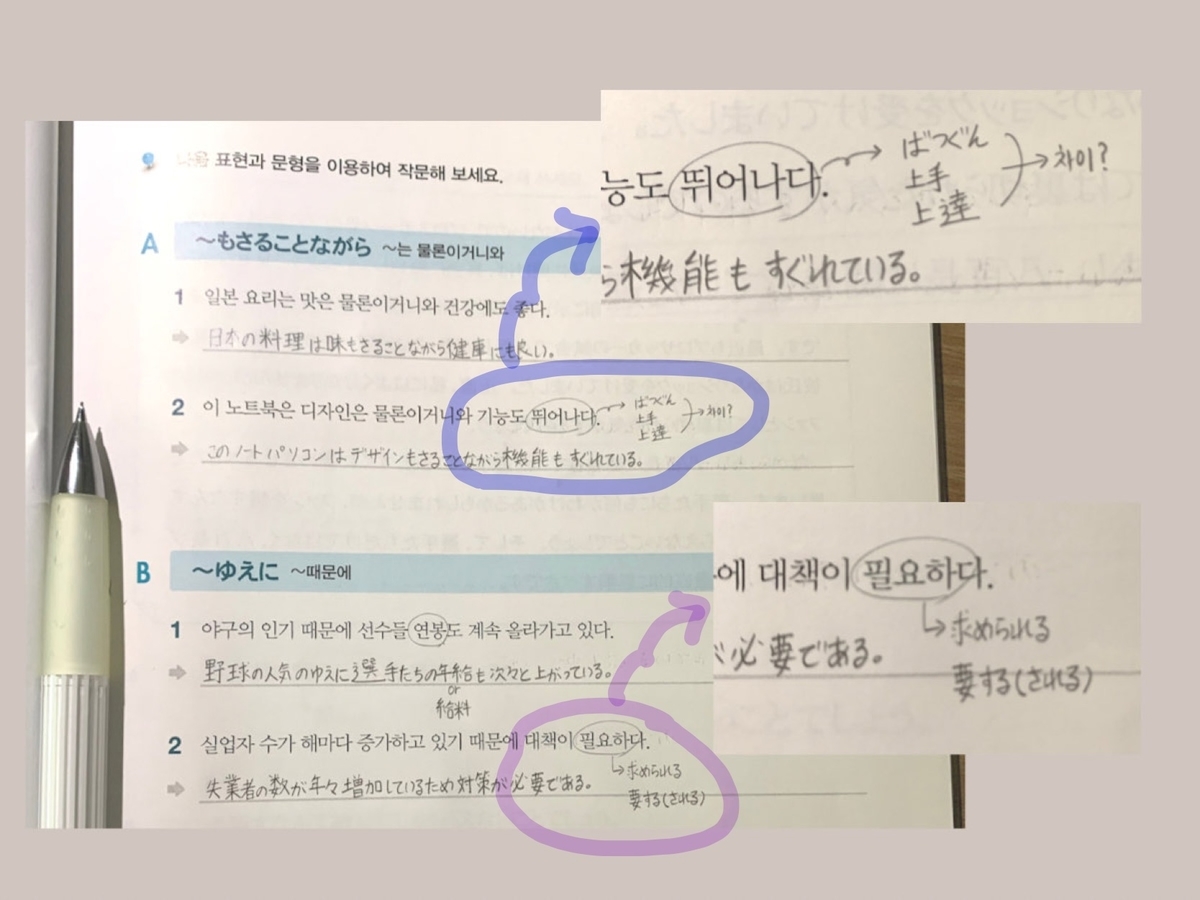 표현과 문형을 이용하여 작문해 보세요.
A ~もさることながら ~는 물론이거니와
1 일본 요리는 맛은 물론이거니와 건강에도 좋다.
日本の料理は味もさることながら健康にも良い。
2 이 노트북은 디자인은 물론이거니와 기능도 뛰어나다.
ばつぐん
上手
上達
차이?
このノートパソコンはデザインもさることながら機能もすぐれている。
B ~ゆえに ~때문에
1 야구의 인기 때문에 선수들 연봉도 계속 올라가고 있다.
野球の人気のゆえに選手たちの年給も次々と上がっている。
or
給料
2 실업자 수가 해마다 증가하고 있기 때문에 대책이 필요하다.
求められる
要する(される)
失業者の数が年々増加しているため対策が必要である。
능도 뛰어나다.
ばつぐん
上手
上達
차이?
ら機能もすぐれている。
에 대책이 필요하다.
求められる
必要である。
要する(される)